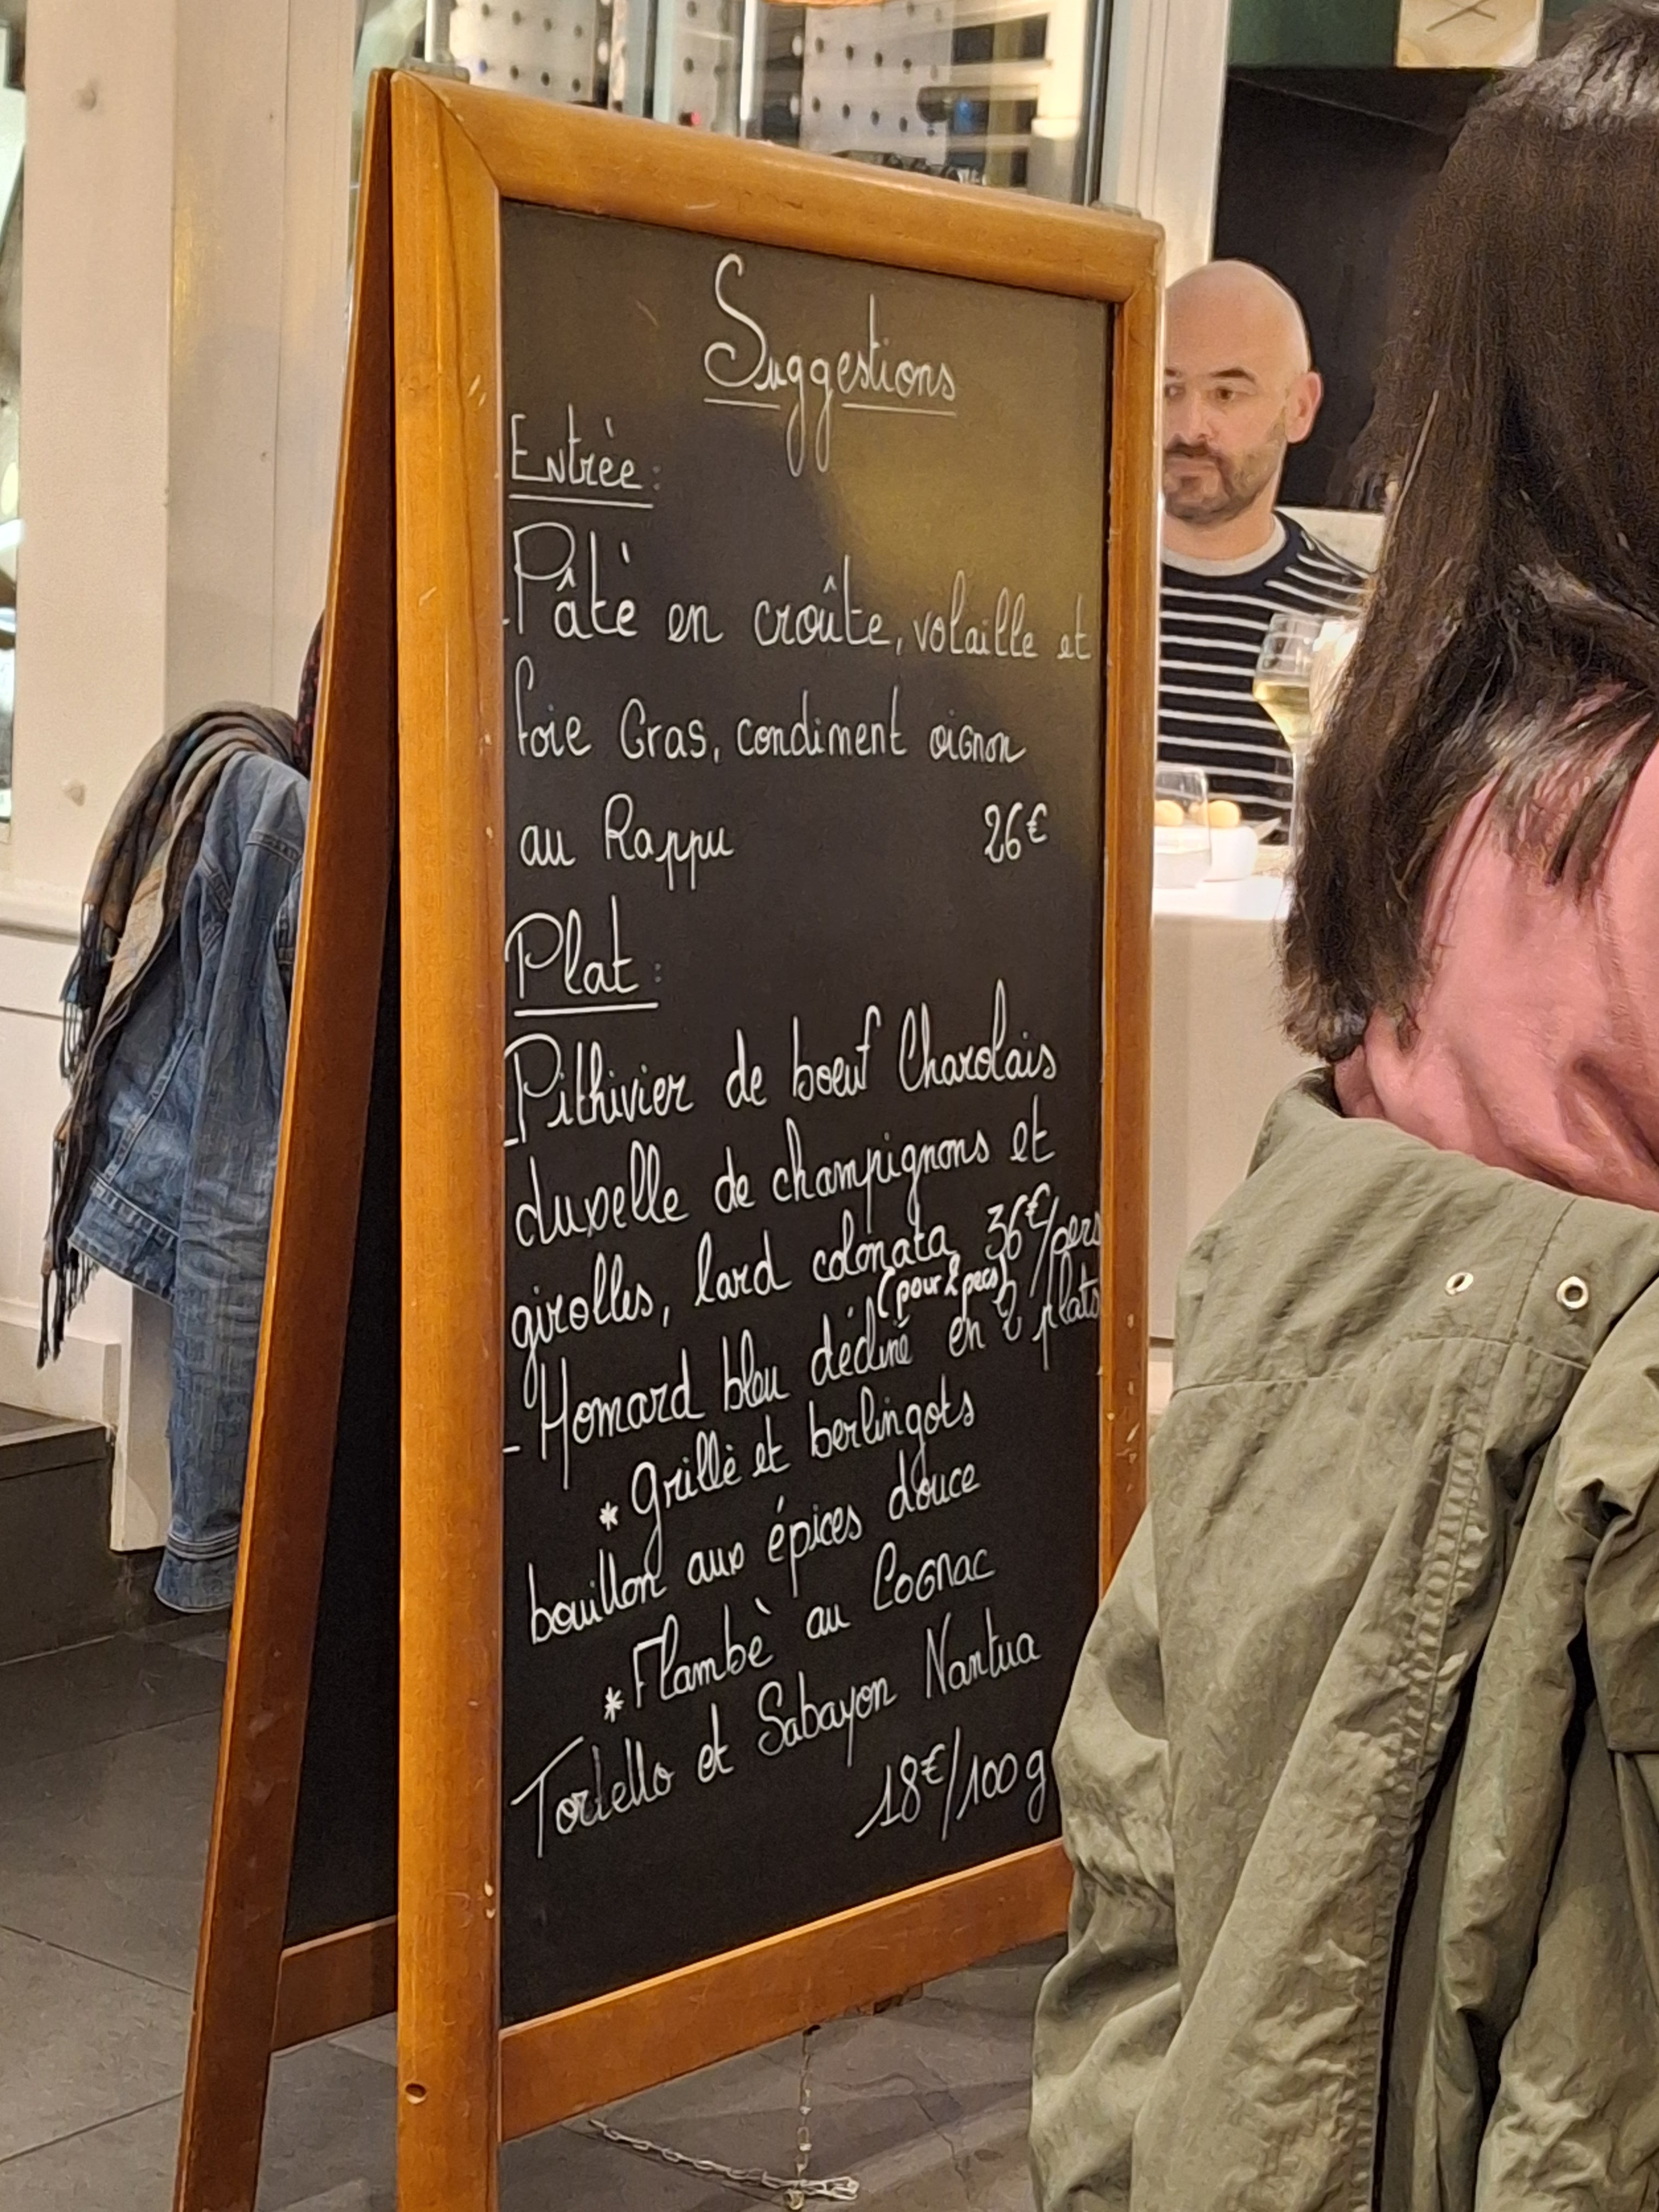 Suggestions
Entrèe :
- Pâtè en croûte, volaille et
foie Gras, condiment oignon
au Rappu 26€
Plat :
- Pithivier de boeuf Charolais
duxelle de champignons et
girolles, lard colonata 36€/pers
(pour 2 pers)
- Homard bleu décliné en 2 plats
* Grillè et berlingots
bouillon aux épices douce
* Flambè au Cognac
Tortello et Sabayon Nantua
18€/100g